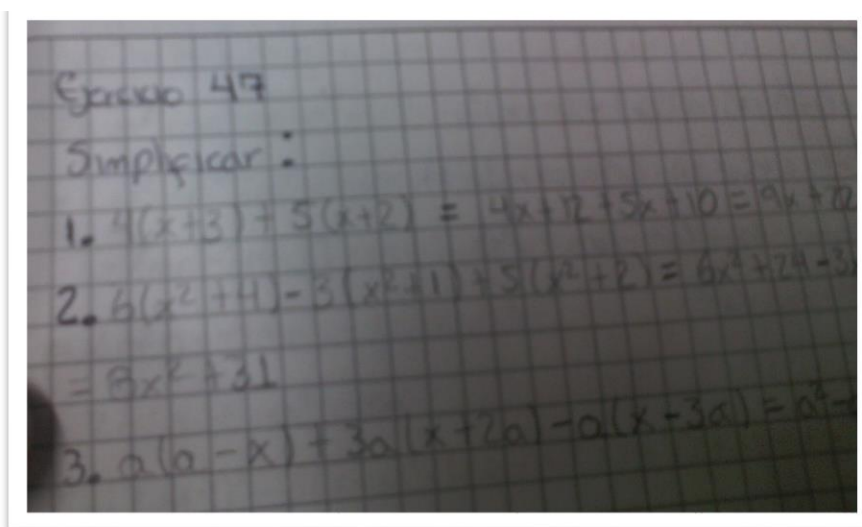 Ejercicio 47
Simplificar:
1. 4(x+3)+5(x+2) = 4x+12+5x+10=9x+22
2. 6(x²+4)-3(x²+1)+5(x²+2)= 6x²+24-3x
= 8x²+31
3. a(a-x)+3a(x+2a)-a(x-3a)=a²-